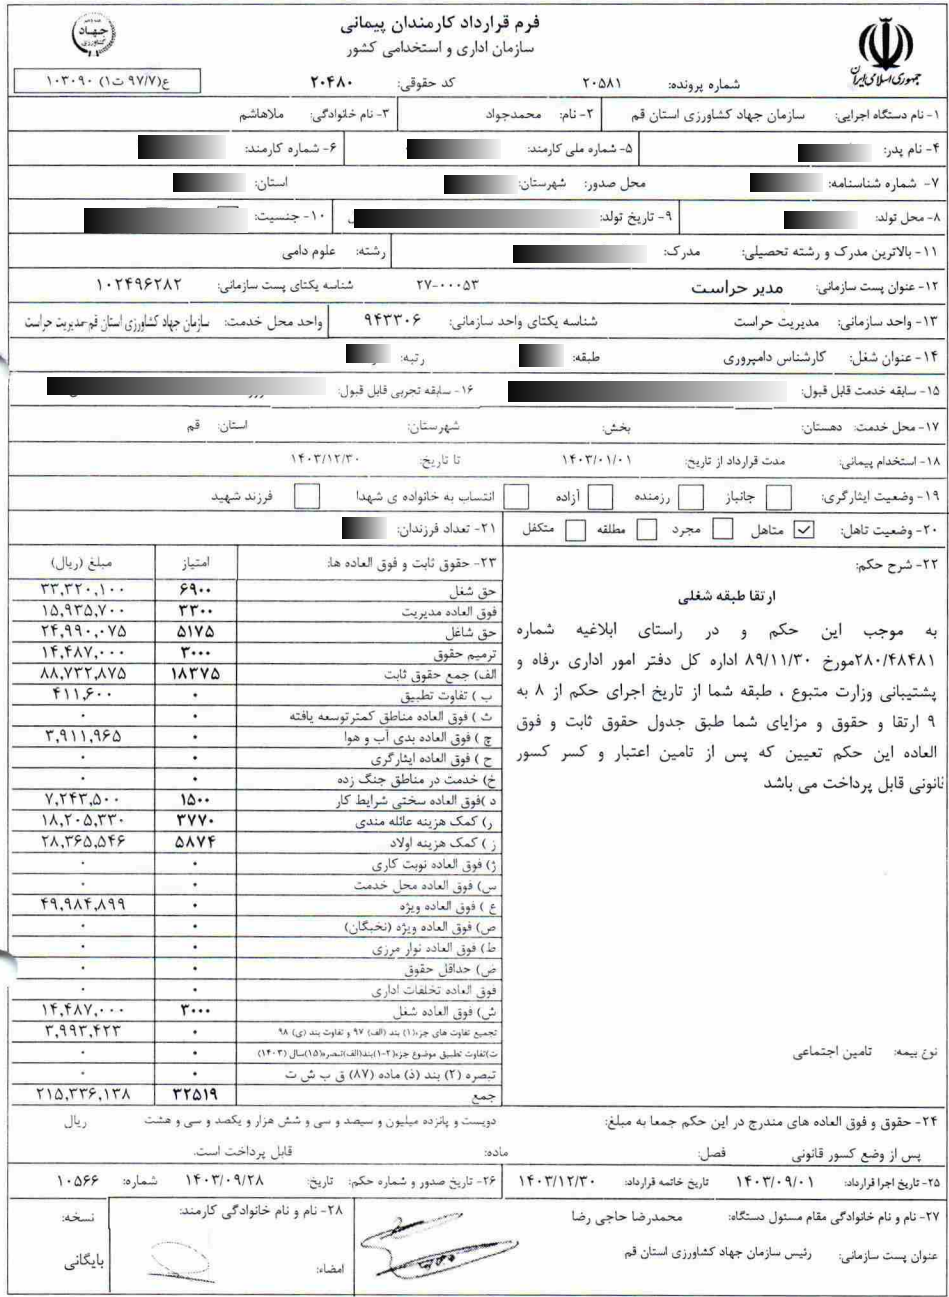 فرم قرارداد کارمندان پیمانی
سازمان اداری و استخدامی کشور
جهاد
کشاورزی
جمهوری اسلامی ایران
شماره پرونده: ۲۰۵۸۱ کد حقوقی: ۲۰۴۸۰ ع(۹۷/۷ ت۱) ۱۰۳۰۹۰
۱- نام دستگاه اجرایی: سازمان جهاد کشاورزی استان قم ۲- نام: محمدجواد ۳- نام خانوادگی: ملاهاشم
۴- نام پدر: ۵- شماره ملی کارمند: ۶- شماره کارمند:
۷- شماره شناسنامه: محل صدور: شهرستان: استان:
۸- محل تولد: ۹- تاریخ تولد: ۱۰- جنسیت:
۱۱- بالاترین مدرک و رشته تحصیلی: مدرک: رشته: علوم دامی
۱۲- عنوان پست سازمانی: مدیر حراست ۲۷-۰۰۰۵۳ شناسه یکتای پست سازمانی: ۱۰۲۴۹۶۲۸۲
۱۳- واحد سازمانی: مدیریت حراست شناسه یکتای واحد سازمانی: ۹۴۳۳۰۶ واحد محل خدمت: سازمان جهاد کشاورزی استان قم-مدیریت حراست
۱۴- عنوان شغل: کارشناس دامپروری طبقه: رتبه:
۱۵- سابقه خدمت قابل قبول: ۱۶- سابقه تجربی قابل قبول:
۱۷- محل خدمت: دهستان: بخش: شهرستان: استان: قم
۱۸- استخدام پیمانی: مدت قرارداد از تاریخ: ۱۴۰۳/۰۱/۰۱ تا تاریخ: ۱۴۰۳/۱۲/۳۰
۱۹- وضعیت ایثارگری: جانباز رزمنده آزاده انتساب به خانواده ی شهدا فرزند شهید
۲۰- وضعیت تاهل: متاهل مجرد مطلقه متکفل ۲۱- تعداد فرزندان:
۲۲- شرح حکم:
ارتقا طبقه شغلی
به موجب این حکم و در راستای ابلاغیه شماره
۲۸۰/۴۸۴۸۱مورخ ۸۹/۱۱/۳۰ اداره کل دفتر امور اداری ،رفاه و
پشتیبانی وزارت متبوع ، طبقه شما از تاریخ اجرای حکم از ۸ به
۹ ارتقا و حقوق و مزایای شما طبق جدول حقوق ثابت و فوق
العاده این حکم تعیین که پس از تامین اعتبار و کسر کسور
قانونی قابل پرداخت می باشد
نوع بیمه: تامین اجتماعی
۲۳- حقوق ثابت و فوق العاده ها: امتیاز مبلغ (ریال)
حق شغل ۶۹۰۰ ۳۳,۳۲۰,۱۰۰
فوق العاده مدیریت ۳۳۰۰ ۱۵,۹۳۵,۷۰۰
حق شاغل ۵۱۷۵ ۲۴,۹۹۰,۰۷۵
ترمیم حقوق ۳۰۰۰ ۱۴,۴۸۷,۰۰۰
الف) جمع حقوق ثابت ۱۸۳۷۵ ۸۸,۷۳۲,۸۷۵
ب ) تفاوت تطبیق ۰ ۴۱۱,۶۰۰
ث ) فوق العاده مناطق کمتر توسعه یافته ۰ ۰
چ ) فوق العاده بدی آب و هوا ۰ ۳,۹۱۱,۹۶۵
ح ) فوق العاده ایثارگری ۰ ۰
خ) خدمت در مناطق جنگ زده ۰ ۰
د )فوق العاده سختی شرایط کار ۱۵۰۰ ۷,۲۴۳,۵۰۰
ر) کمک هزینه عائله مندی ۳۷۷۰ ۱۸,۲۰۵,۳۳۰
ز ) کمک هزینه اولاد ۵۸۷۴ ۲۸,۳۶۵,۵۴۶
ژ) فوق العاده نوبت کاری ۰ ۰
س) فوق العاده محل خدمت ۰ ۰
ع ) فوق العاده ویژه ۰ ۴۹,۹۸۴,۸۹۹
ص) فوق العاده ویژه (نخبگان) ۰ ۰
ط) فوق العاده نوار مرزی ۰ ۰
ض) حداقل حقوق ۰ ۰
فوق العاده تخلفات اداری ۰ ۰
ش) فوق العاده شغل ۳۰۰۰ ۱۴,۴۸۷,۰۰۰
تجمیع تفاوت های جزء(۱) بند (الف) ۹۷ و تفاوت بند (ی) ۹۸ ۰ ۳,۹۹۳,۴۲۳
ت)تفاوت تطبیق موضوع جزء(۱-۲)بند(الف)تبصره(۱۵)سال (۱۴۰۳) ۰ ۰
تبصره (۲) بند (ذ) ماده (۸۷) ق ب ش ت ۰ ۰
جمع ۳۲۵۱۹ ۲۱۵,۳۳۶,۱۳۸
۲۴- حقوق و فوق العاده های مندرج در این حکم جمعا به مبلغ: دویست و پانزده میلیون و سیصد و سی و شش هزار و یکصد و سی و هشت ریال
پس از وضع کسور قانونی فصل: ماده: قابل پرداخت است.
۲۵- تاریخ اجرا قرارداد: ۱۴۰۳/۰۹/۰۱ تاریخ خاتمه قرارداد: ۱۴۰۳/۱۲/۳۰ ۲۶- تاریخ صدور و شماره حکم: تاریخ: ۱۴۰۳/۰۹/۲۸ شماره: ۱۰۵۶۶
۲۷- نام و نام خانوادگی مقام مسئول دستگاه: محمدرضا حاجی رضا ۲۸- نام و نام خانوادگی کارمند: نسخه:
عنوان پست سازمانی: رئیس سازمان جهاد کشاورزی استان قم امضاء: بایگانی